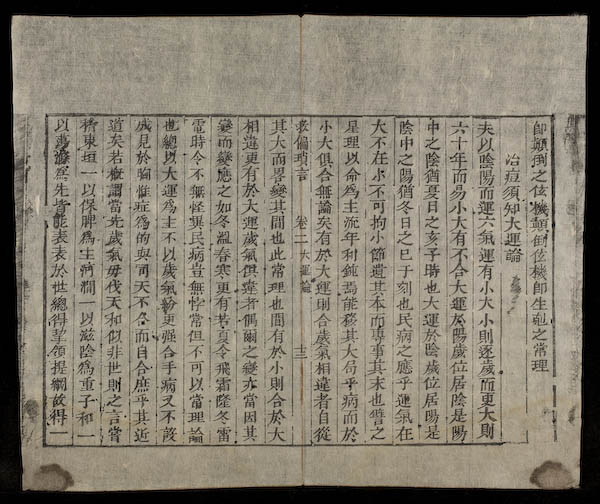 即顛倒之伭機顛倒伭機即生剋之常理
治痘須知大運論
夫以陰陽而運六氣運有小大小則逐歲而更大則
六十年而易小大有不合大運於陽歲位居陰是陽
中之陰猶夏日之亥子時也大運於陰歲位居陽是
陰中之陽猶冬日之巳午刻也民病之應乎運氣在
大不在小不可拘小節遺其本而專事其末也譬之
星理以命為主流年利鈍焉能移其大局乎病而於
小大俱合無論矣有於大運則合歲氣相違者自從
救偏瑣言 卷二 大運論 十三
其大而畧變其間也此常理也間有於小則合於大
相違更有於大運歲氣俱違者偶爾之變亦當因其
變而變應之如冬溫春寒更有若夏令飛霜隆冬雷
電時令不無怪異民病豈無悖常但不可以當理論
也總以大運為主不以歲氣紛更强合乎病又不設
成見於胸惟症為的與司天不合而自合庶乎其近
道矣若㮣謂當先歲氣毋伐天和似非世則之言嘗
稽東垣一以保脾為主河澗一以滋陰為重子和一
以蕩滌為先皆能表表於世總得挈領提綱故得一